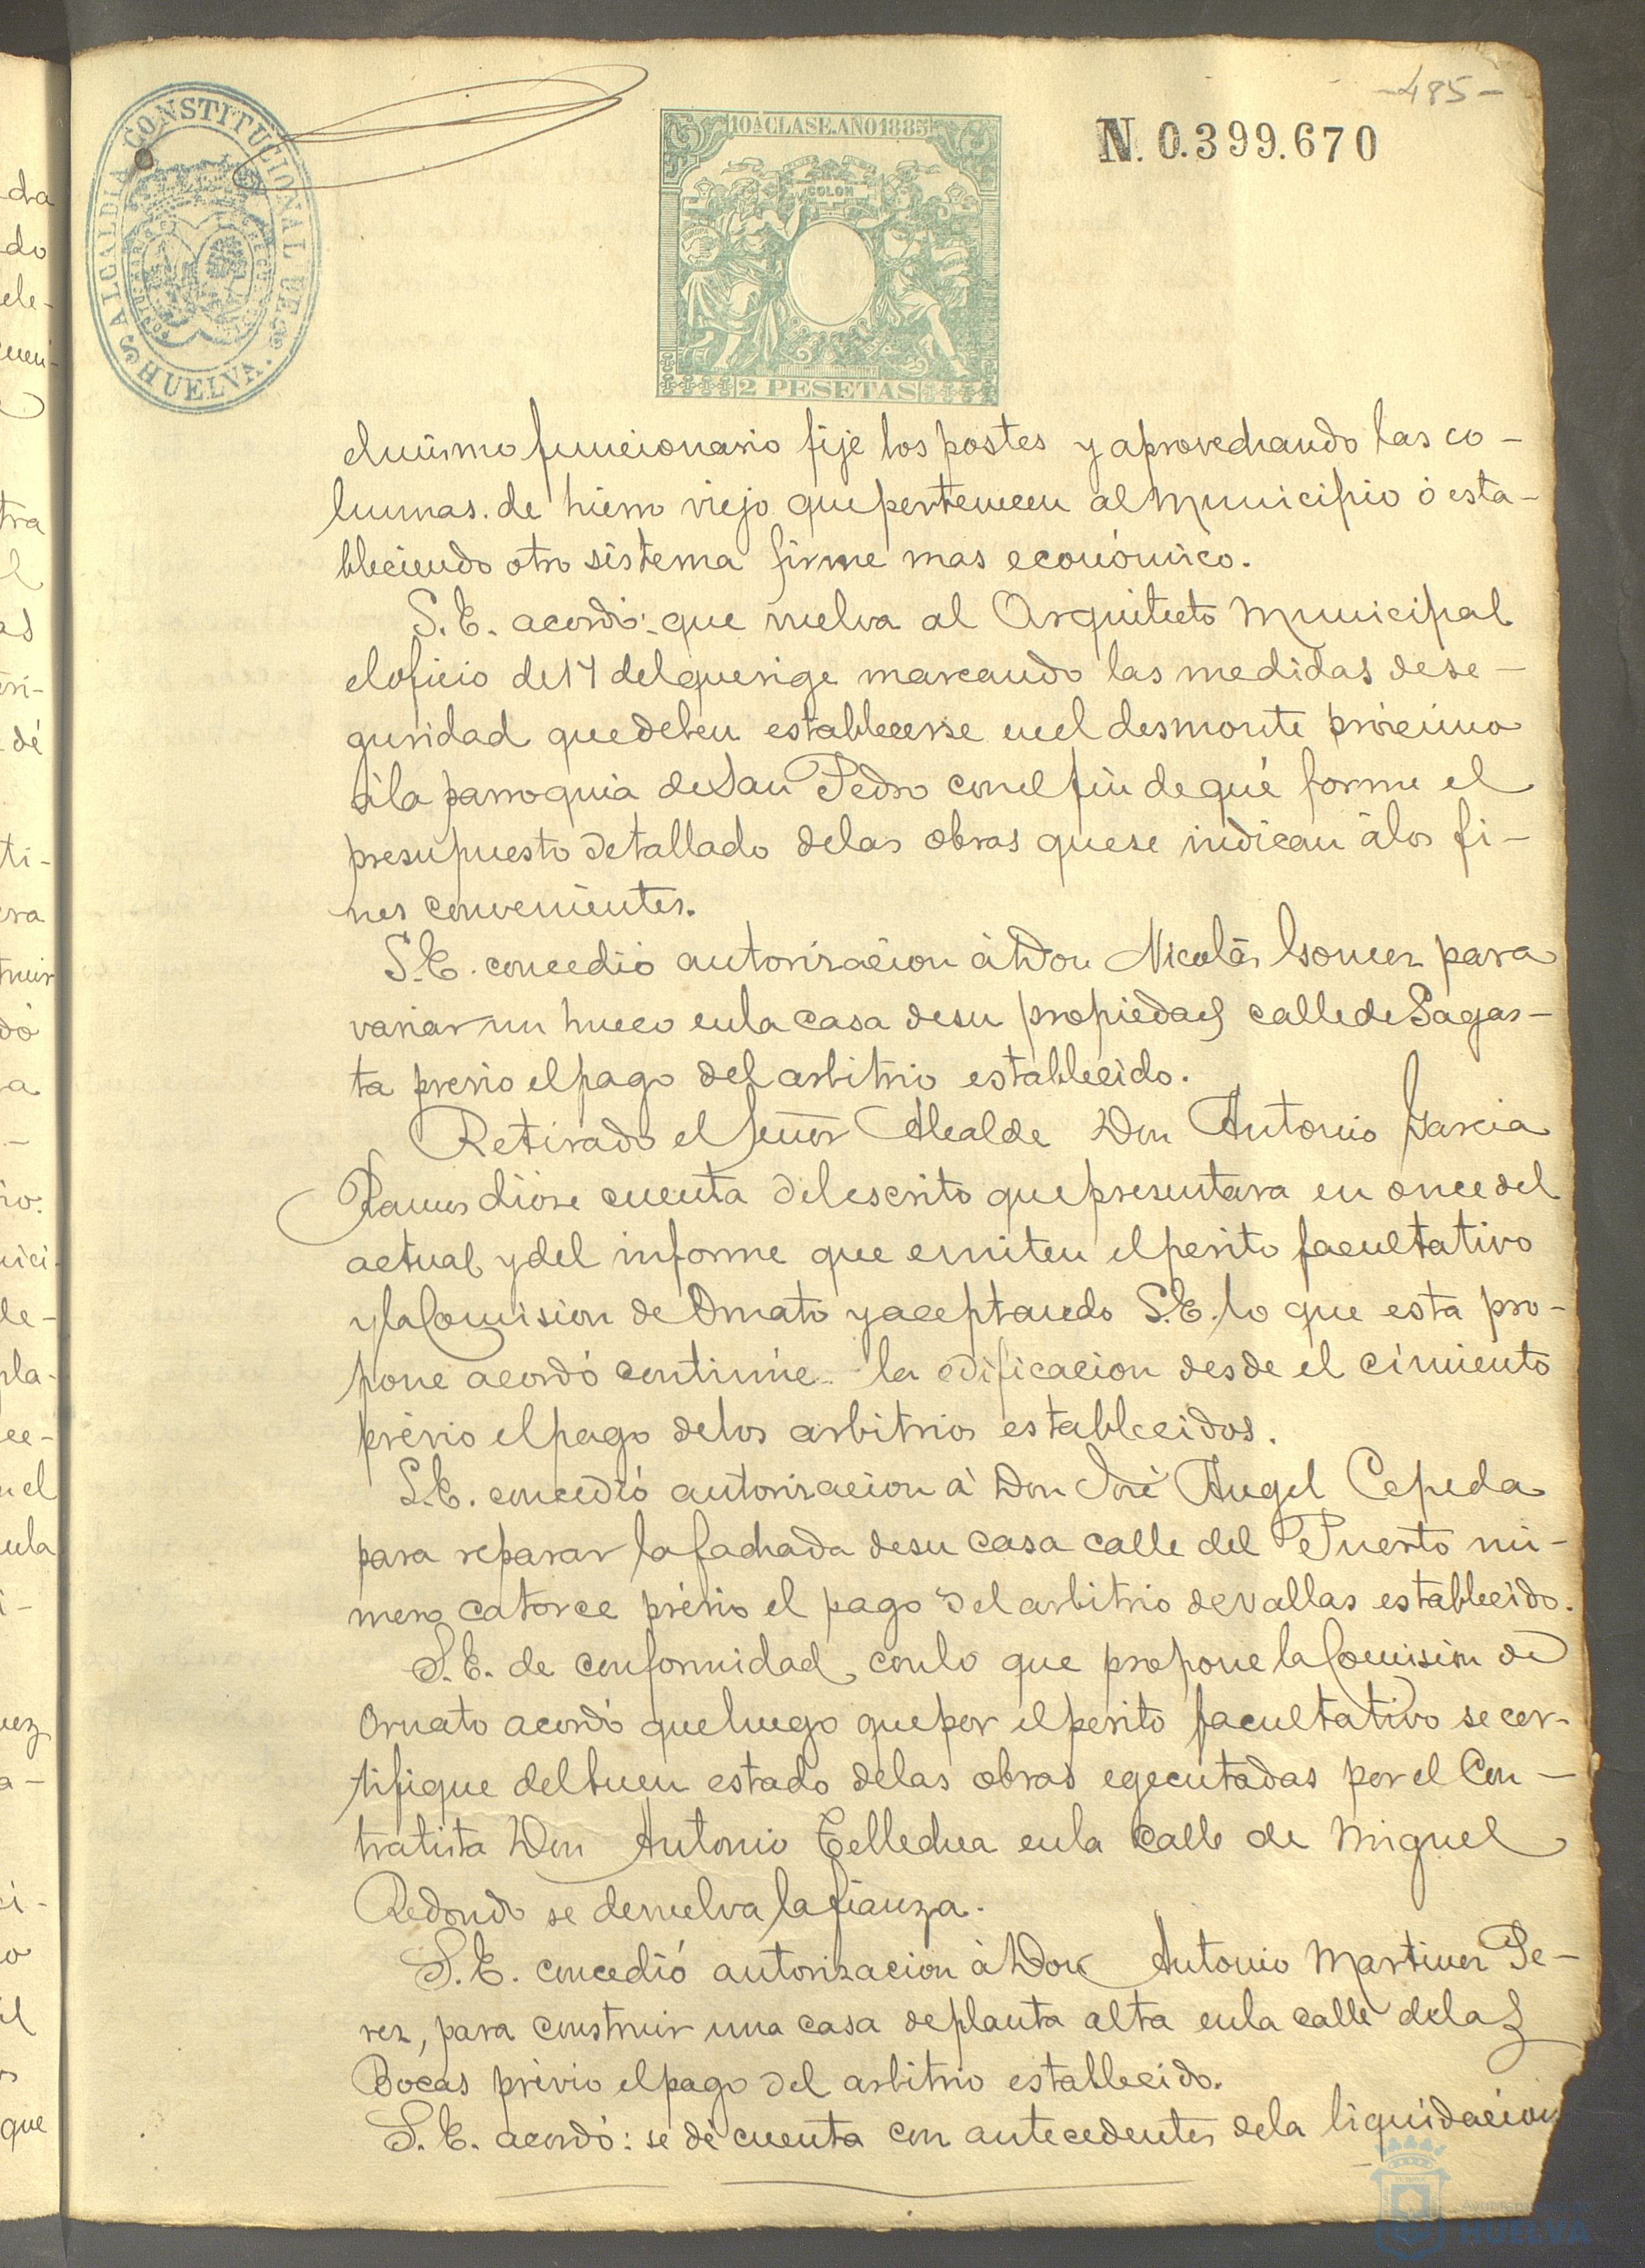 -485-
ALCALDIA CONSTITUCIONAL DE HUELVA.
10A CLASE. AÑO 1885
COLON
2 PESETAS
N. 0.399.670
el mismo funcionario fije los postes y aprovechando las co-
lumnas de hierro viejo que pertenecen al Municipio ó esta-
bleciendo otro sistema firme mas económico.
S. E. acordó: que vuelva al Arquitecto Municipal
el oficio de 17 del que rige marcando las medidas de se-
guridad que deben establecerse en el desmonte próximo
á la parroquia de San Pedro con el fin de qué forme el
presupuesto detallado de las obras que se indican á los fi-
nes convenientes.
S. E. concedió autorizacion á Don Nicolás Gomez para
variar un hueco en la casa de su propiedad calle de Sagas-
ta previo el pago del arbitrio establecido.
Retirado el Señor Alcalde Don Antonio Garcia
Ramos dióse cuenta del escrito que presentara en once del
actual y del informe que emiten el perito facultativo
y la Comision de Ornato y aceptando S. E. lo que esta pro-
pone acordó continúe la edificacion desde el cimiento
prévio el pago de los arbitrios establecidos.
S. E. concedió autorizacion á Don José Angel Cepeda
para reparar la fachada de su casa calle del Puerto nú-
mero catorce prévio el pago del arbitrio de vallas establecido.
S. E. de conformidad con lo que propone la Comision de
Ornato acordó que luego que por el perito facultativo se cer-
tifique del buen estado de las obras egecutadas por el Con-
tratista Don Antonio Tellechea en la calle de Miguel
Redondo se devuelva la fianza.
S. E. concedió autorizacion á Don Antonio Martinez Pe-
rez, para construir una casa de planta alta en la calle de las
Bocas prévio el pago del arbitrio establecido.
S. E. acordó: se dé cuenta con antecedentes de la liquidacion
Ayuntamiento de
HUELVA